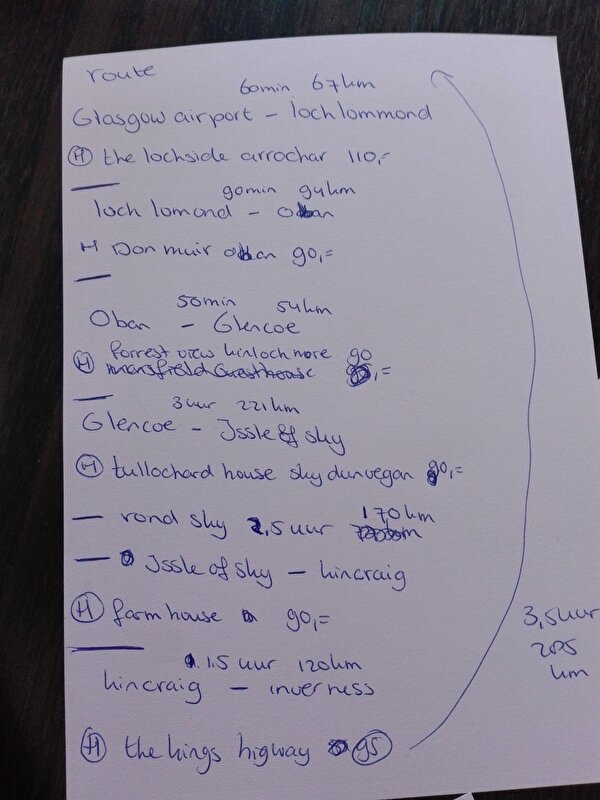 route
60min 67km
Glasgow airport - loch lommond
H the lochside arrochar 110,-
90min 94km
loch lomond - Oban
H Don muir oban 90,=
50min 54km
Oban - Glencoe
H forrest view kinlochmore 90
mansfield Guesthouse ,=
3 uur 221km
Glencoe - Issle of sky
H tullochard house sky dunvegan 90,=
- rond sky 2,5 uur 170km
- Issle of sky - kincraig
H farm house 90,=
1.5 uur 120km
kincraig - inverness
H the kings higway 95
3,5 uur
205
km